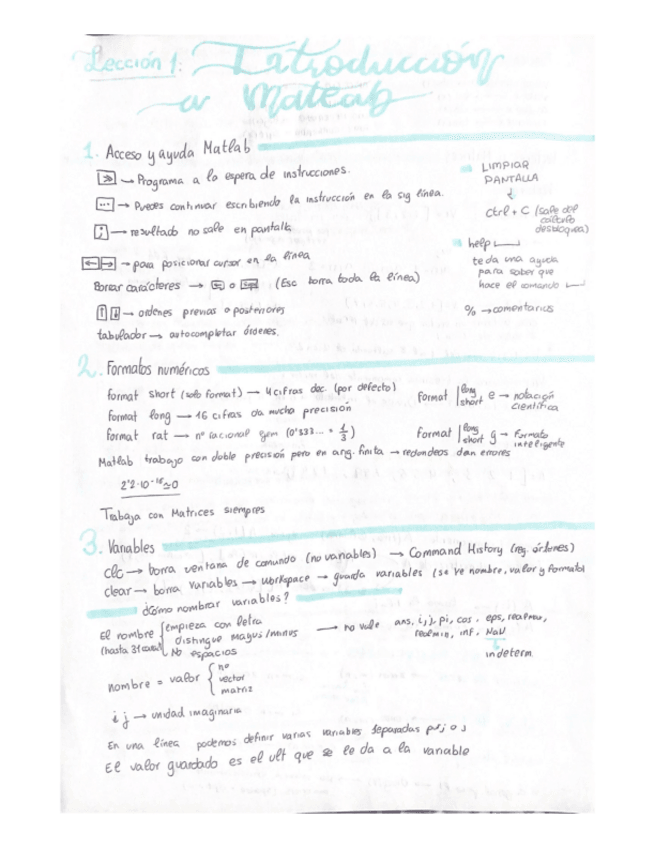 Lección 1: Introducción
a Matlab
1. Acceso y ayuda Matlab
>> → Programa a la espera de instrucciones.
... → Puedes continuar escribiendo la instrucción en la sig línea.
; → resultado no sale en pantalla
← → → para posicionar cursor en la línea
Borrar carácteres → ← o (Esc borra toda la línea)
↑ ↓ → ordenes previas o posteriores
tabulador → autocompletar órdenes.
LIMPIAR
PANTALLA
↓
ctrl + C (sale del
desbloquea)
help
te da una ayuda
para saber que
hace el comando
% → comentarios
2. Formatos numéricos
format short (solo format) → 4 cifras dec. (por defecto)
format long → 16 cifras da mucha precisión
format rat → nº racional (0'333... = 1/3)
format | long short e → notación
científica
format | long short g → Formato
inteligente
Matlab trabaja con doble precisión pero en finita → redondeos dan errores
2'2·10^-16 ≈ 0
Trabaja con Matrices siempres
3. Variables
clc → borra ventana de comando (no variables) → Command History (reg. órdenes)
clear → borra variables → workspace → guarda variables (se ve nombre, valor y formato)
¿Cómo nombrar variables?
El nombre { empieza con letra
(hasta 31 ) distingue mayus/minus
No espacios
→ no vale ans, i, j, pi, cos, eps, realmax,
realmin, inf, NaN
indeterm
nombre = valor { nº
vector
matriz
i j → unidad imaginaria
En una línea podemos definir varias variables separadas por , o ;
El valor guardado es el ult que se le da a la variable